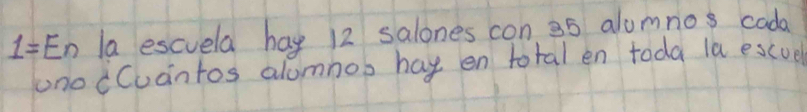 1=En la escuela hay 12 salones con 35 alumnos cada
uno ¿Cuántos alumnos hay en total en toda la escuel